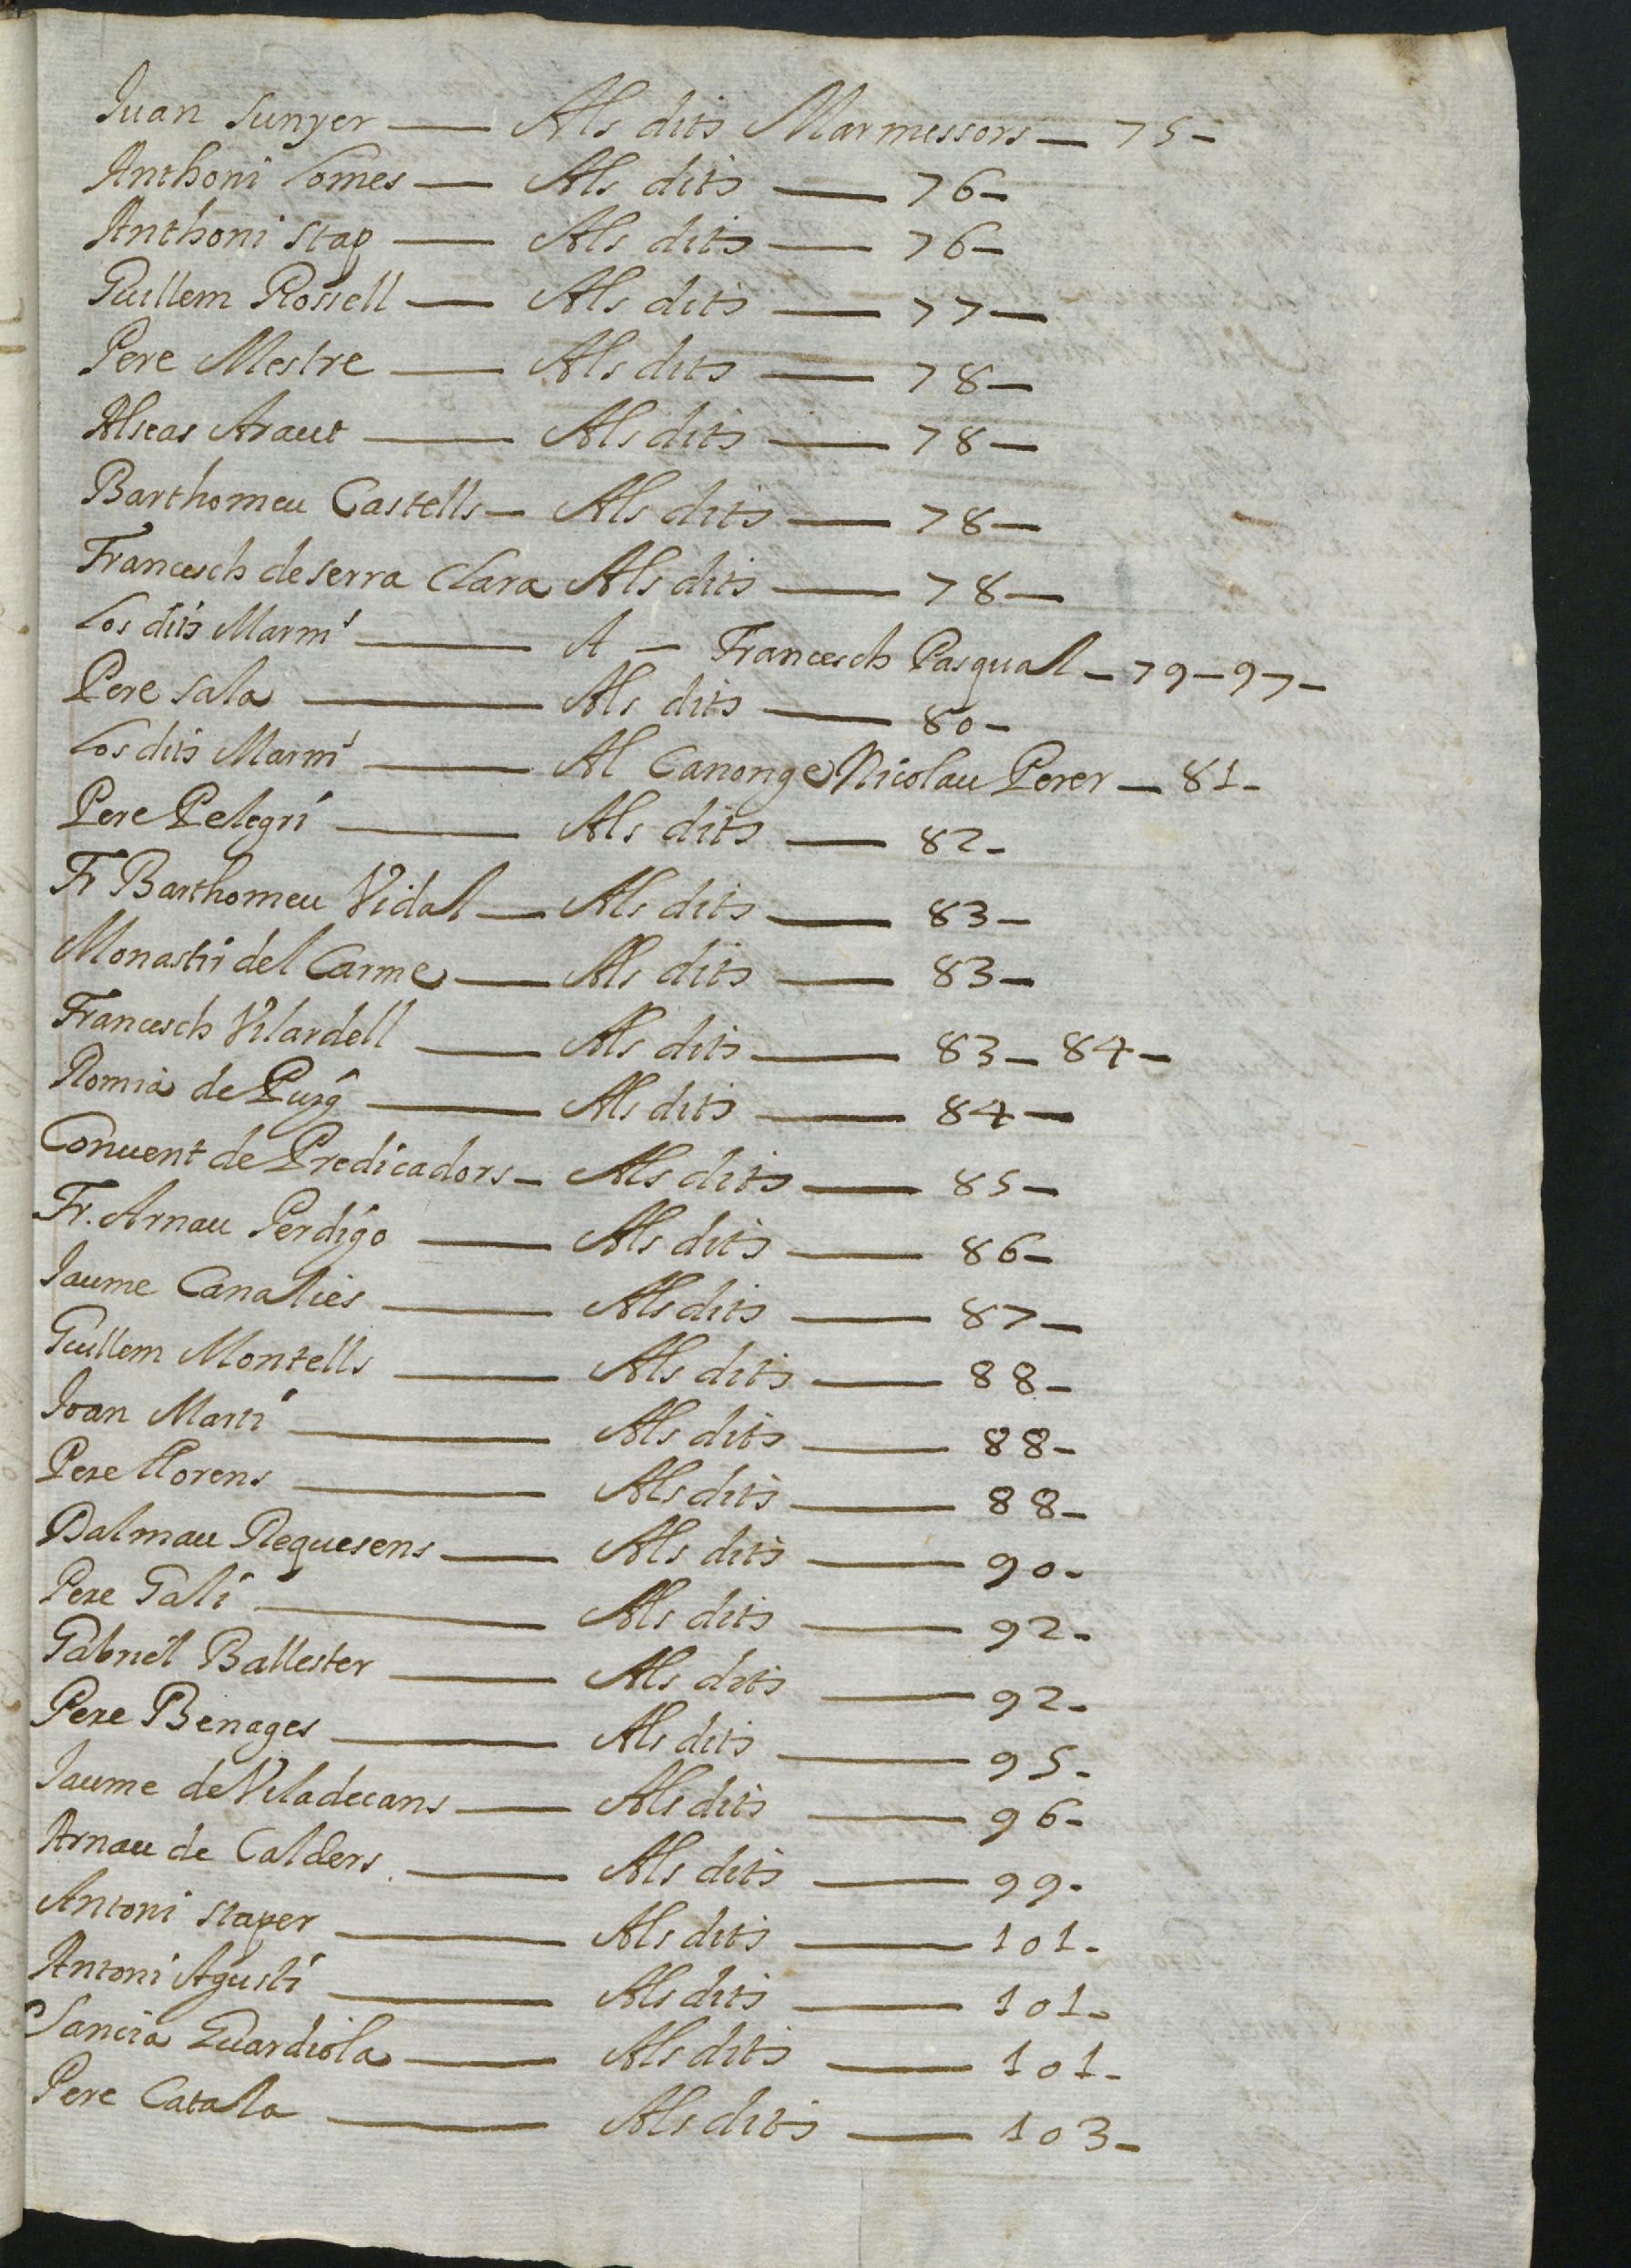 Juan Sunyer — Als dits Marmessors — 75 -
Anthoni Comes — Als dits — 76 -
Anthoni Stap — Als dits — 76 -
Guillem Rossell — Als dits — 77 —
Pere Mestre — Als dits — 78 —
Als dits — 78 —
Barthomeu Castells — Als dits — 78 —
Francesch de serra Clara Als dits — 78 —
Los dits Marm^s — A — Francesch Pasqual — 79 - 97 -
Pere Sala — Als dits — 80 -
Los dits Marm^s — Al Canonge Nicolau Perer — 81 -
Pere Pelegrí — Als dits — 82 -
Fr Barthomeu Vidal — Als dits — 83 -
Monastir del Carme — Als dits — 83 -
Francesch Vilardell — Als dits — 83 - 84 -
Romia de Puig — Als dits — 84 —
Convent de Predicadors — Als dits — 85 -
Fr. Arnau Perdigo — Als dits — 86 -
Jaume Canalies — Als dits — 87 -
Guillem Montells — Als dits — 88 -
Joan Martí — Als dits — 88 -
Pere Llorens — Als dits — 88 -
Dalmau Requesens — Als dits — 90 -
Pere Galí — Als dits — 92 -
Gabriel Ballester — Als dits — 92 -
Pere Benages — Als dits — 95 -
Jaume de Viladecans — Als dits — 96 -
Arnau de Calders — Als dits — 99 -
Antoni Staper — Als dits — 101 -
Antoni Agustí — Als dits — 101 -
Sancia Guardiola — Als dits — 101 -
Pere Catala — Als dits — 103 -